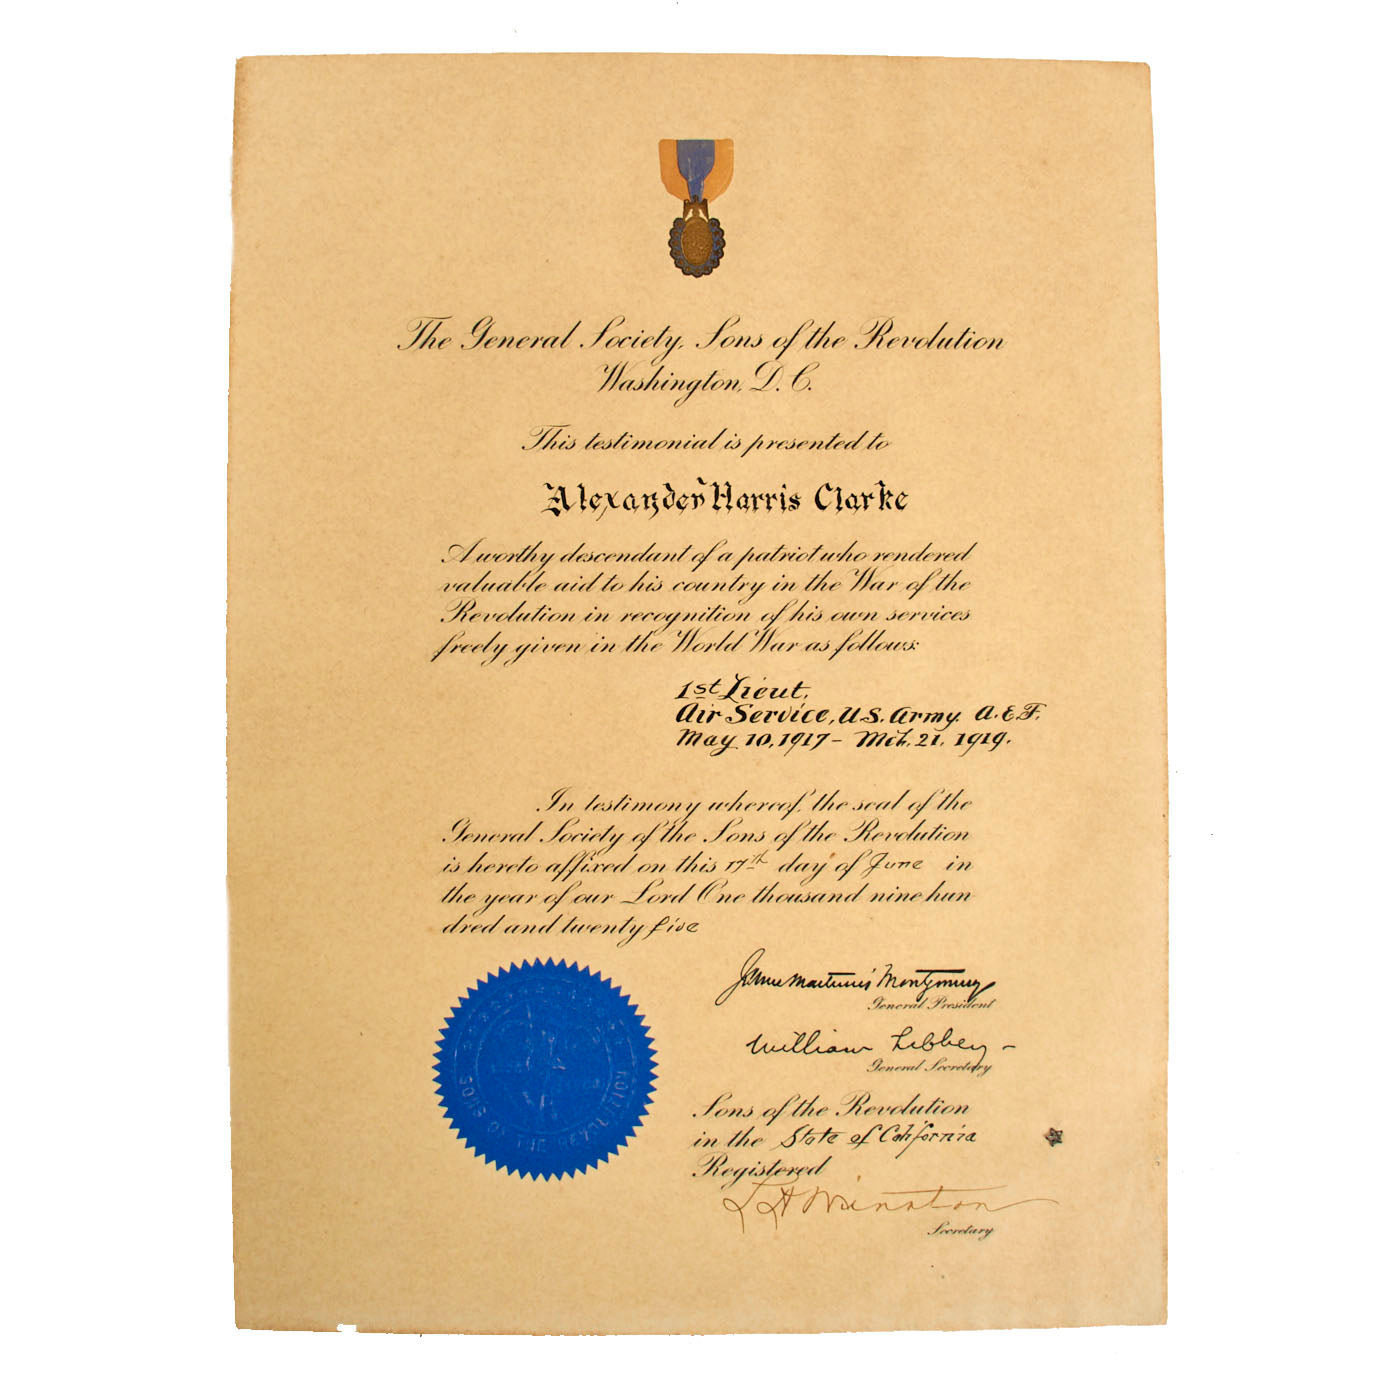 The General Society, Sons of the Revolution
Washington, D. C.
This testimonial is presented to
Alexander Harris Clarke
A worthy descendant of a patriot who rendered
valuable aid to his country in the War of the
Revolution in recognition of his own services
freely given in the World War as follows:
1st Lieut.
Air Service, U.S. Army. A.E.F.
May 10, 1917 – Mch. 21, 1919.
In testimony whereof, the seal of the
General Society of the Sons of the Revolution
is hereto affixed on this 17th day of June in
the year of our Lord One thousand nine hun
dred and twenty five
SONS OF THE REVOLUTION
James Mortimer Montgomery
General President
William Libbey –
General Secretary
Sons of the Revolution
in the State of California
Registered
Winston
Secretary